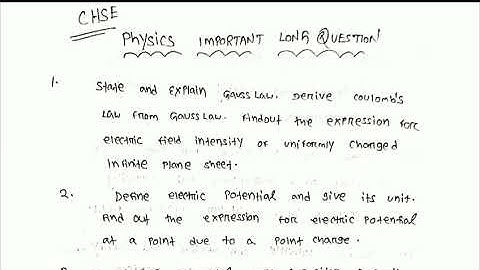 CHSE
Physics IMPORTANT LONG QUESTION
1. State and Explain Gauss Law. Derive coulomb's
Law from Gauss Law. Findout the expression for
electric field intensity of uniformly changed
Infinite plane sheet.
2. Define electric potential and give its unit.
And out the expression for electric potential
at a point due to a point change.